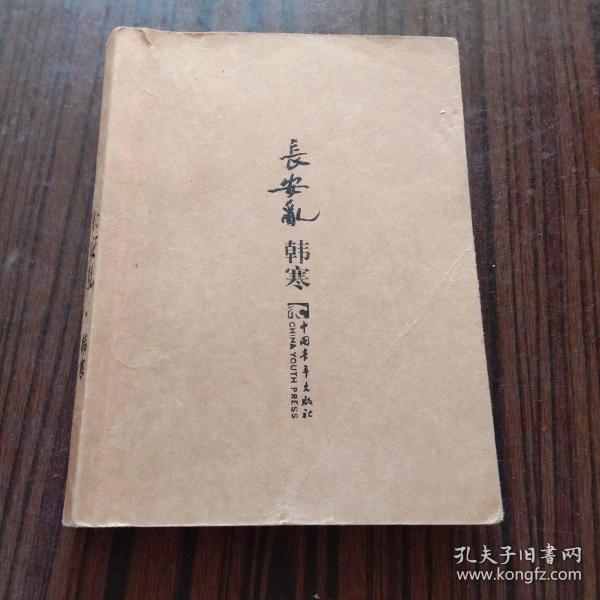 長安亂
韩寒
中国青年出版社
CHINA YOUTH PRESS
長安亂·韩寒
孔夫子旧书网
www.kongfz.com